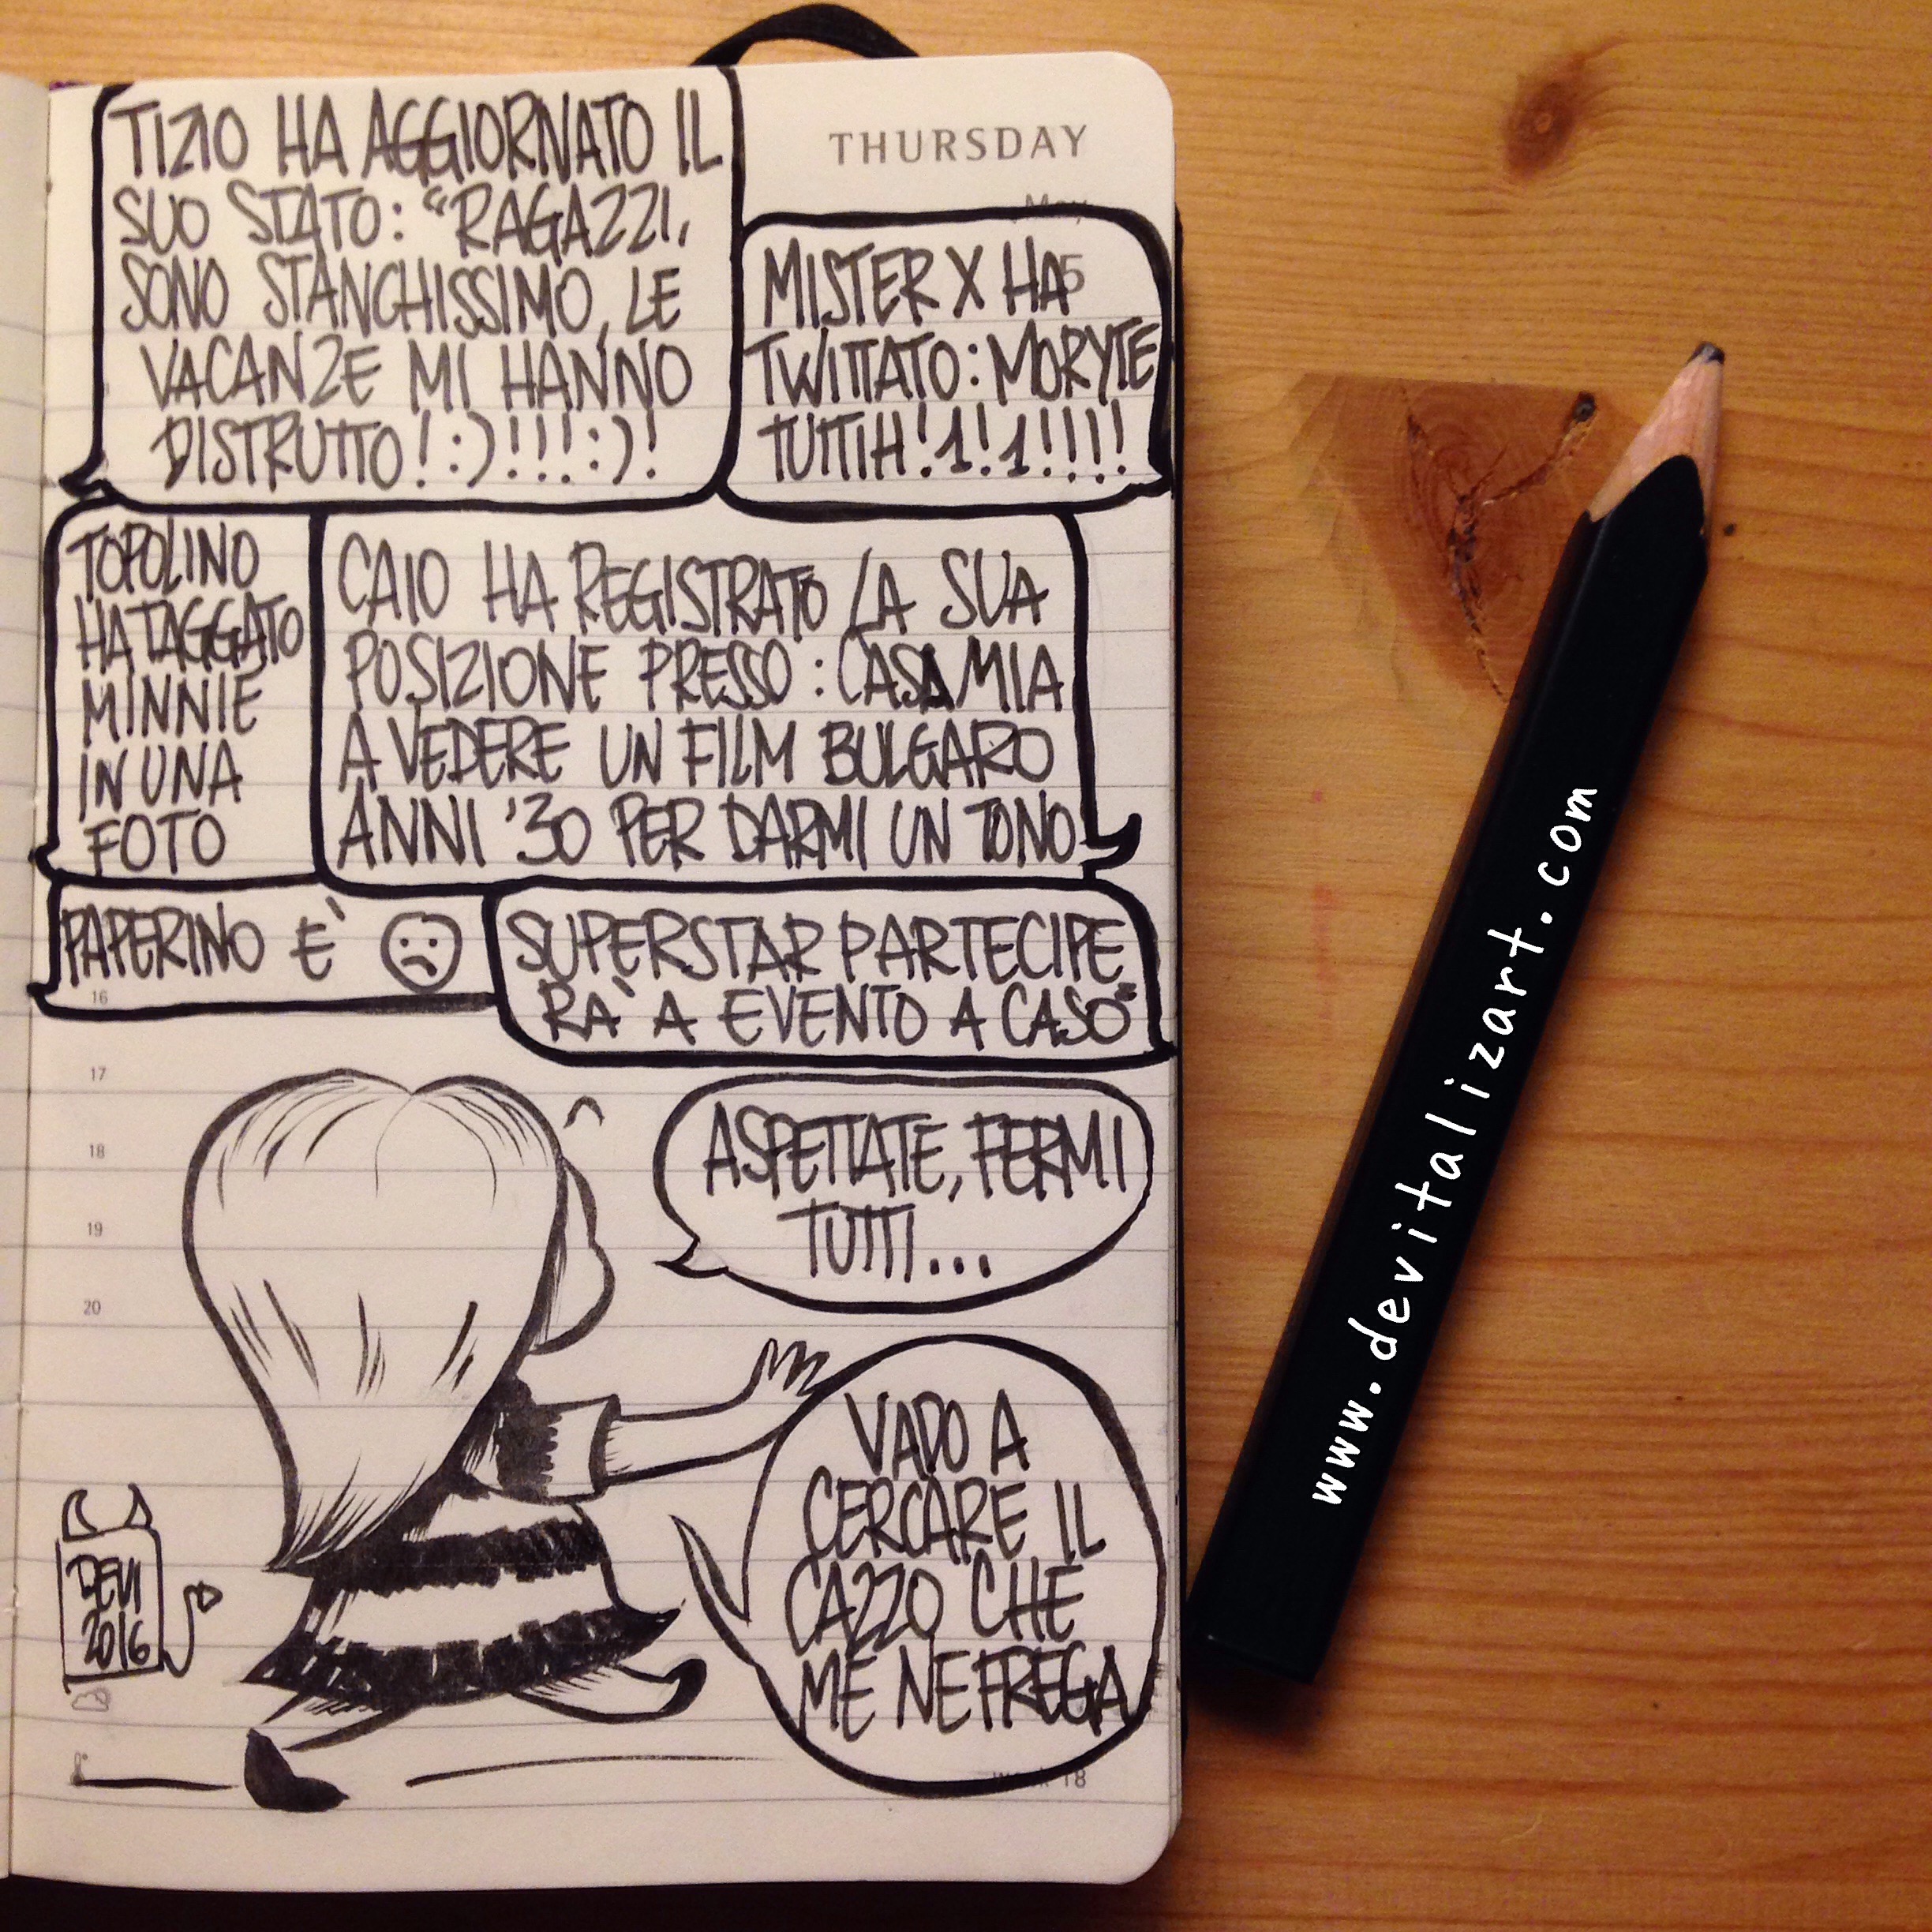 TIZIO HA AGGIORNATO IL
SUO STATO: "RAGAZZI,
SONO STANCHISSIMO, LE
VACANZE MI HANNO
DISTRUTTO!:)!!!:)!
THURSDAY
May
5
MISTER X HA
TWITTATO: MORYTE
TUTTIH!1!1!!!!
TOPOLINO
HA TAGGATO
MINNIE
IN UNA
FOTO
CAIO HA REGISTRATO LA SUA
POSIZIONE PRESSO: CASA MIA
A VEDERE UN FILM BULGARO
ANNI '30 PER DARMI UN TONO
PAPERINO E'
SUPERSTAR PARTECIPE
RA' A EVENTO A CASO"
16
17
18
19
20
ASPETTATE, FERMI
TUTTI...
VADO A
CERCARE IL
CAZZO CHE
ME NE FREGA
DEVI
2016
week 18
www.devitalizart.com